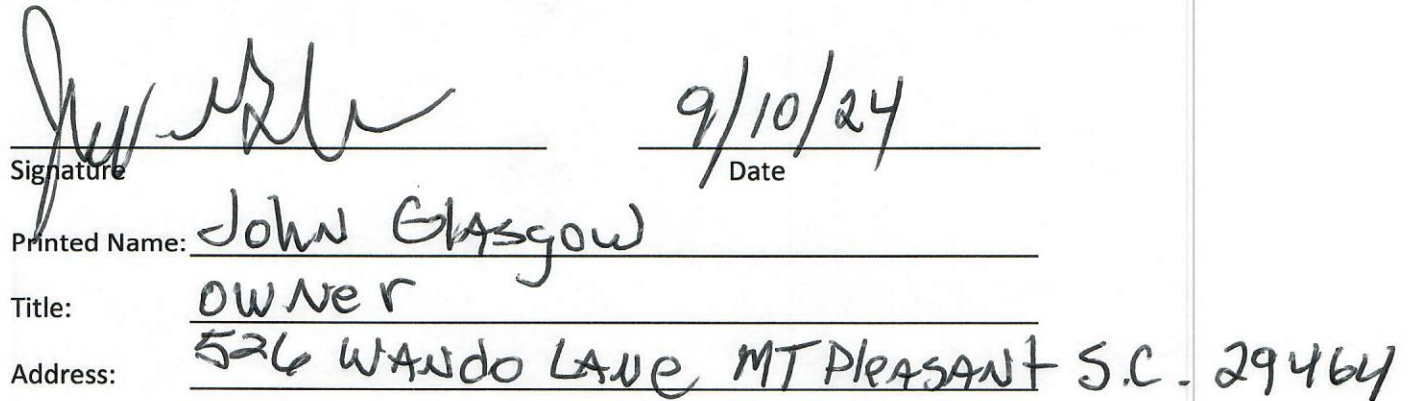 9/10/24
Signature Date
Printed Name: John Glasgow
Title: owner
Address: 526 WANdo LANe MT PleASANt S.C. 29464